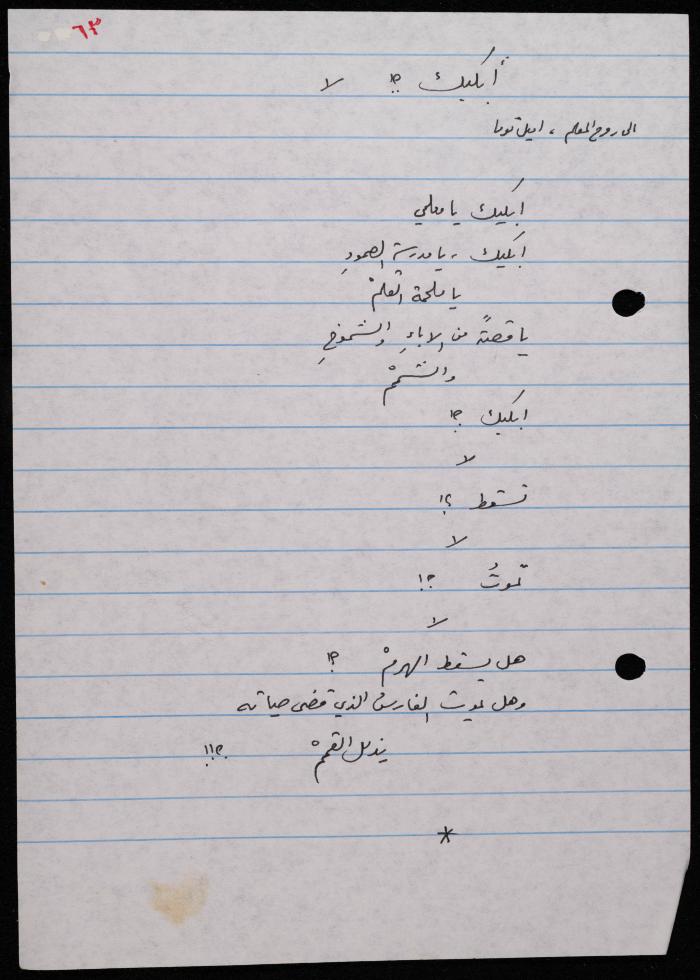 ٦٣
أبكيك ؟! لا
الى روح المعلم ، اميل توما
ابكيك يا معلمي
ابكيك ، يا مدرسة الصمودِ
يا ملحمة القلمْ
يا قصةً من الاباءِ والشموخِ
والشممْ
ابكيك ؟!
لا
تسقط ؟!
لا
تموتُ ؟!
لا
هل يسقط الهرمْ ؟!
وهل يموت الفارس الذي قضى حياته
يذلل القممْ ؟!!
*